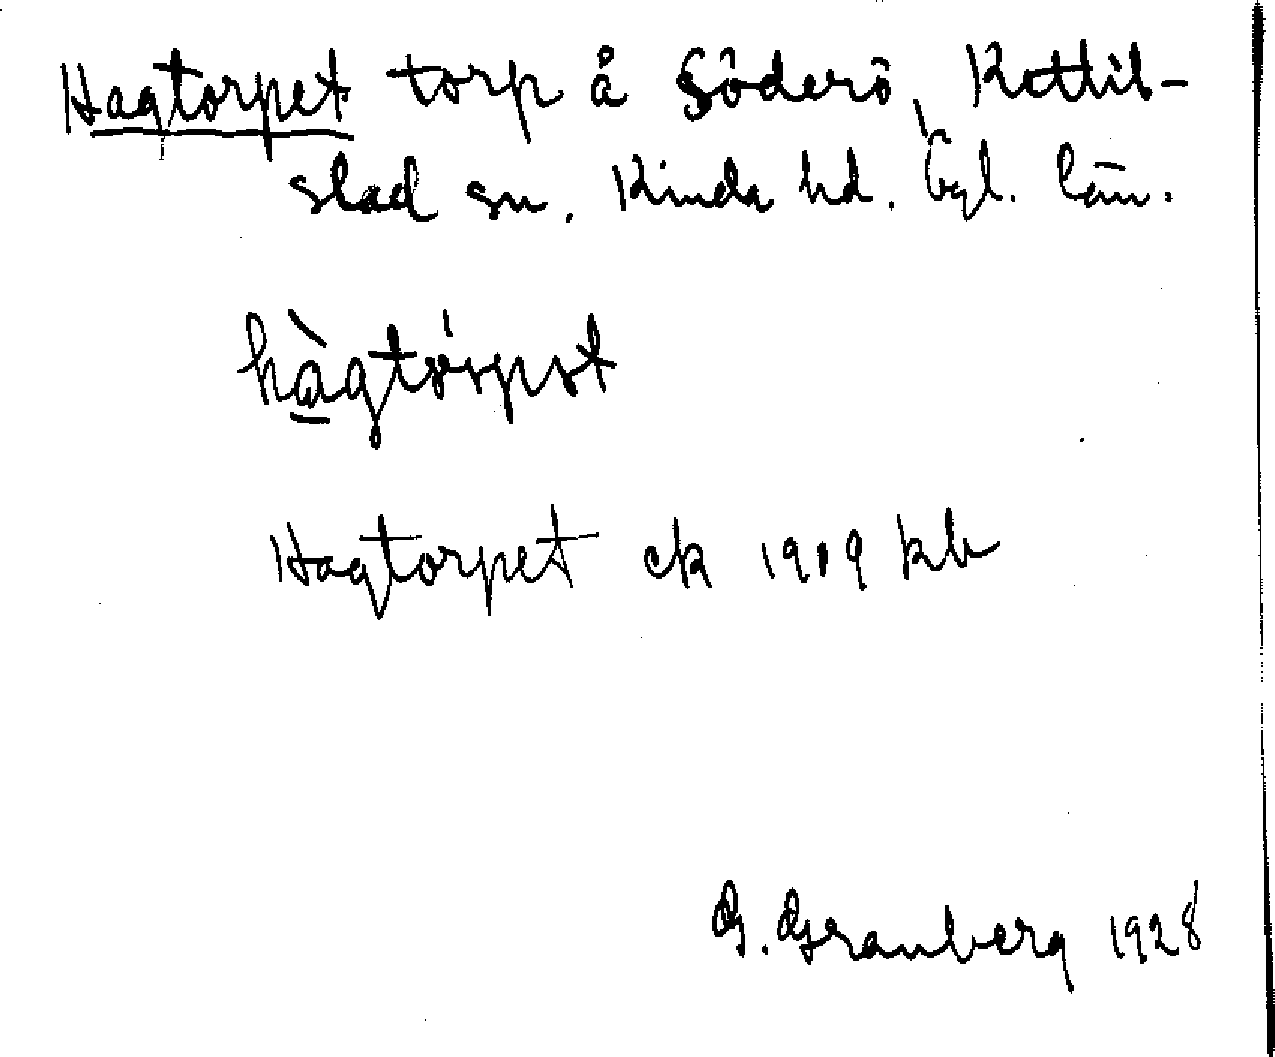 Hagtorpet torp å Söderö, Kettil-
stad sn. Kinda hd. Ögl. län.
hàgtórpət
Hagtorpet ek 1919 kb
G. Granberg 1928